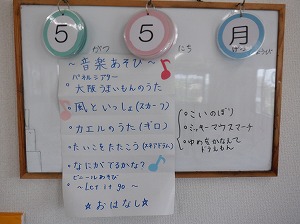 5 がつ 5 にち 月 ようび
～音楽あそび～
パネルシアター
大阪うまいもんのうた
・風といっしょ(スカーフ)
・カエルのうた(ギロ)
・たいこをたたこう(スネアドラム)
・なにがでるかな?
ビニールあそび
～Let it go～
☆おはなし☆
・こいのぼり
・ミッキーマウスマーチ
・ゆめをかなえて
ドラえもん